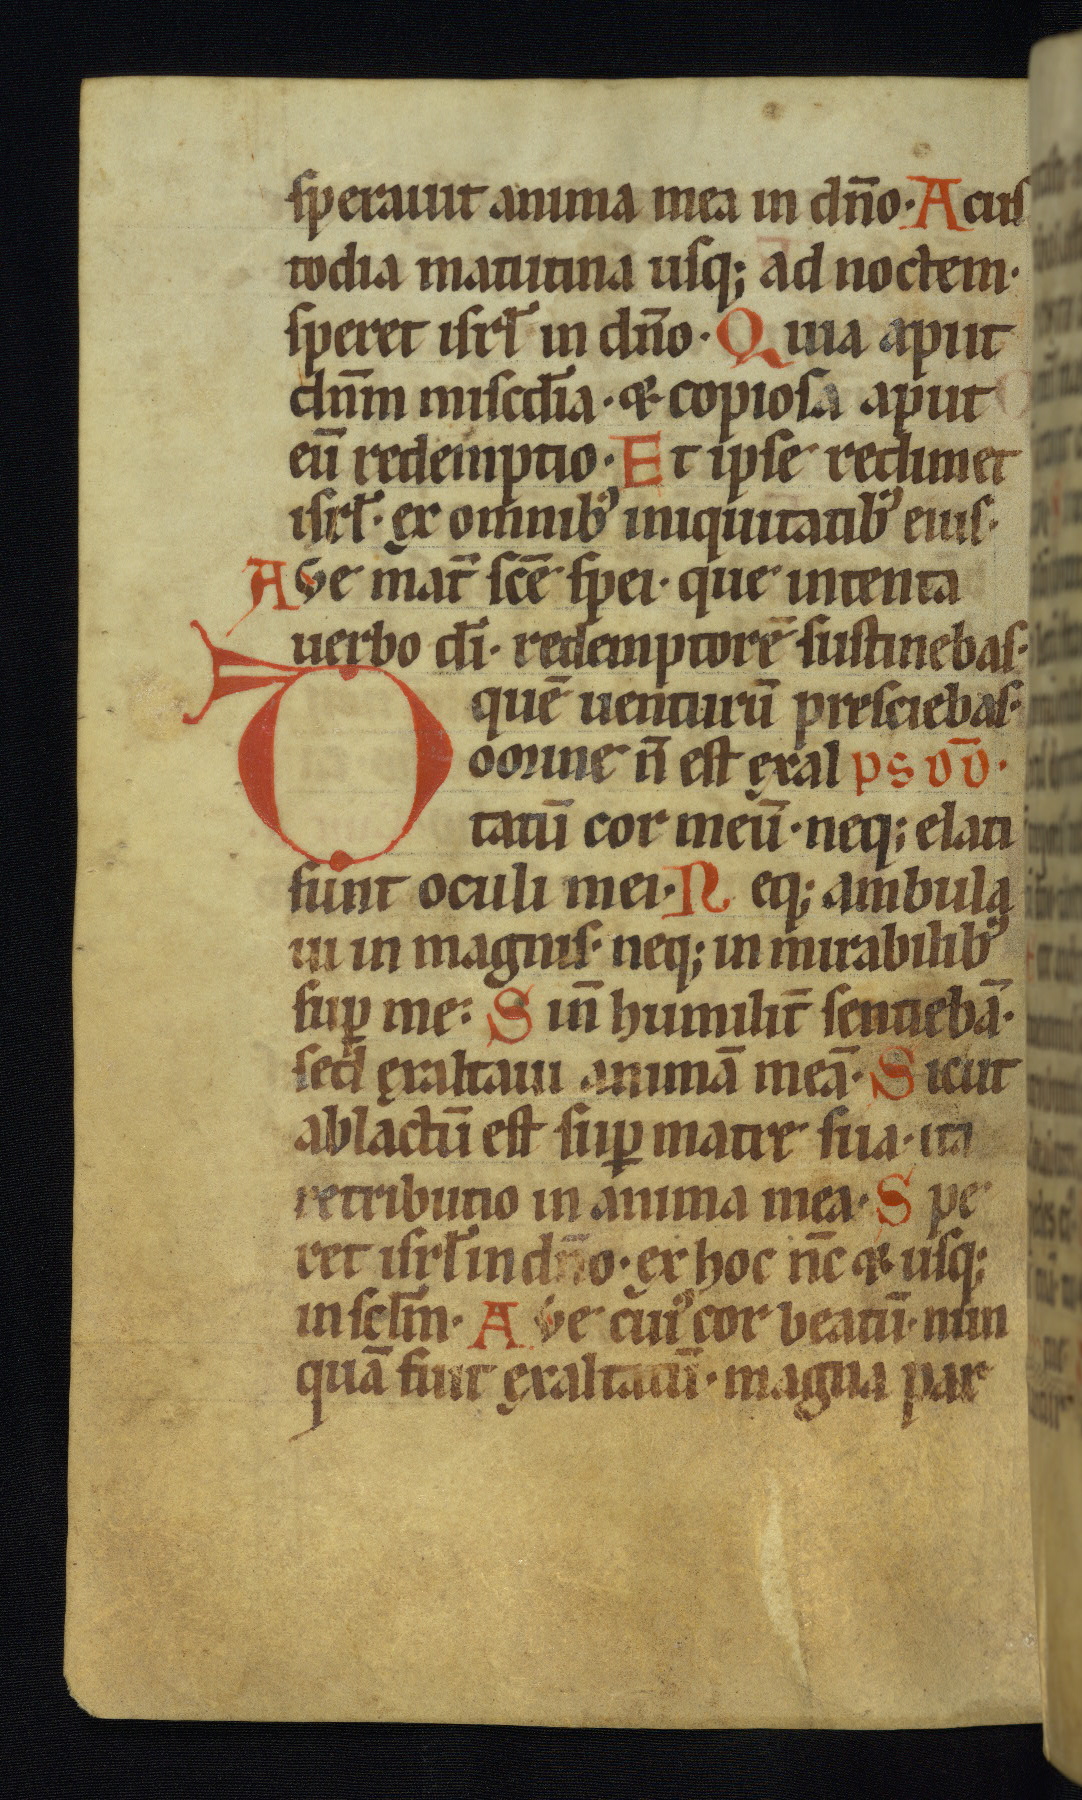 sperauit anima mea in dn̄o· A cus
todia matutina usq; ad noctem·
speret isrl̄ in dn̄o· Quia aput
dn̄m misc̄dia· & copiosa aput
eū redemptio· Et ipse redimet
isrl̄· ex omnibꝰ iniquitatibꝰ eius·
Ave mat̄ sc̄e spei· que intenta
uerbo dī· redemptorē sustinebas·
quē uenturū presciebas·
Domine n̄ est exal ps dd̄·
tatū cor meū· neq; elati
sunt oculi mei· Neq; ambula
ui in magnis· neq; in mirabilibꝰ
suꝑ me· Si n̄ humilit̄ sentiebā·
sed exaltaui animā meā· Sicut
ablactū est suꝑ matre sua· ita
retributio in anima mea· Spe
ret isrl̄ in dn̄o· ex hoc nc̄ & usq;
in sclm̄· Ave cuiꝰ cor beatū· nun
quā fuit exaltatū· magna par